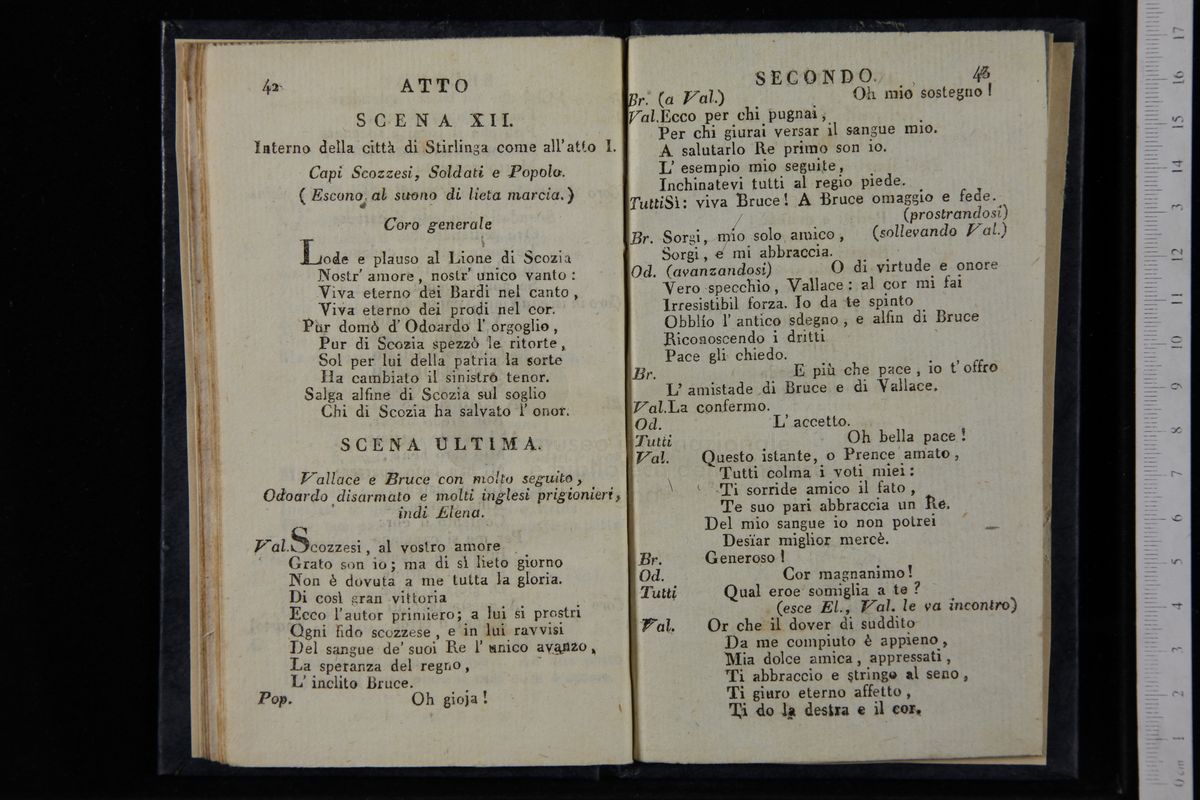 42 ATTO
SCENA XII.
Interno della città di Stirlinga come all'atto I.
Capi Scozzesi, Soldati e Popolo.
( Escono al suono di lieta marcia. )
Coro generale
Lode e plauso al Lione di Scozia
Nostr' amore, nostr' unico vanto :
Viva eterno dei Bardi nel canto,
Viva eterno dei prodi nel cor.
Pur domò d' Odoardo l' orgoglio,
Pur di Scozia spezzò le ritorte,
Sol per lui della patria la sorte
Ha cambiato il sinistro tenor.
Salga alfine di Scozia sul soglio
Chi di Scozia ha salvato l' onor.
SCENA ULTIMA.
Vallace e Bruce con molto seguito,
Odoardo disarmato e molti inglesi prigionieri,
indi Elena.
Val. Scozzesi, al vostro amore
Grato son io; ma di sì lieto giorno
Non è dovuta a me tutta la gloria.
Di così gran vittoria
Ecco l'autor primiero; a lui si prostri
Ogni fido scozzese, e in lui ravvisi
Del sangue de' suoi Re l' unico avanzo,
La speranza del regno,
L' inclito Bruce.
Pop. Oh gioja !
SECONDO. 43
Br. (a Val.) Oh mio sostegno !
Val. Ecco per chi pugnai,
Per chi giurai versar il sangue mio.
A salutarlo Re primo son io.
L' esempio mio seguite,
Inchinatevi tutti al regio piede.
Tutti Sì: viva Bruce! A Bruce omaggio e fede.
(prostrandosi)
Br. Sorgi, mio solo amico, (sollevando Val.)
Sorgi, e mi abbraccia.
Od. (avanzandosi) O di virtude e onore
Vero specchio, Vallace : al cor mi fai
Irresistibil forza. Io da te spinto
Obblio l' antico sdegno, e alfin di Bruce
Riconoscendo i dritti
Pace gli chiedo.
Br. E più che pace, io t' offro
L' amistade di Bruce e di Vallace.
Val. La confermo.
Od. L' accetto.
Tutti Oh bella pace !
Val. Questo istante, o Prence amato,
Tutti colma i voti miei :
Ti sorride amico il fato,
Te suo pari abbraccia un Re.
Del mio sangue io non potrei
Desïar miglior mercè.
Br. Generoso !
Od. Cor magnanimo !
Tutti Qual eroe somiglia a te ?
(esce El., Val. le va incontro)
Val. Or che il dover di suddito
Da me compiuto è appieno,
Mia dolce amica, appressati,
Ti abbraccio e stringo al seno,
Ti giuro eterno affetto,
Ti do la destra e il cor.
0 cm 1 2 3 4 5 6 7 8 9 10 11 12 13 14 15 16 17